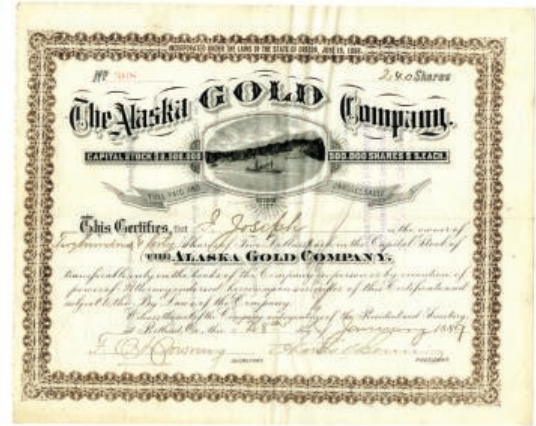 INCORPORATED UNDER THE LAWS OF THE STATE OF OREGON, JUNE 19, 1888.
No 240 Shares
The Alaska GOLD Company.
CAPITAL STOCK 500,000 SHARES $ 5. EACH.
FULL PAID AND UNASSESSABLE
This Certifies, that I. Joseph is the owner of
Two hundred & forty Shares of Five Dollars each in the Capital Stock of
THE ALASKA GOLD COMPANY,
transferable only on the books of the Company in person or by
power of Attorney on surrender of this Certificate and
subject to the By Laws of the Company.
Witness the of the Company and of the President and Secretary
at Portland, Or., this 8th day of January 1889
SECRETARY PRESIDENT